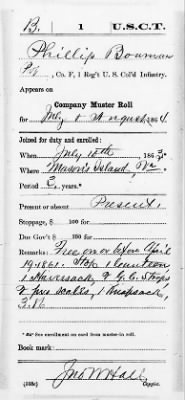 B. 1 U.S.C.T.
Phillip Bowman
Pvt, Co. F, 1 Reg't U. S. Col'd Infantry.
Appears on
Company Muster Roll
for July & August, 1864.
Joined for duty and enrolled:
When July 10th, 1863.*
Where Mason's Island, Va.
Period 3, years.*
Present or absent Present.
Stoppage, $ 100 for
Due Gov't $ 100 for
Remarks: Free on or before April
19, 1861. 1 Canteen,
1 Haversack, Straps
& pr Scales, 1 Knapsack,
*See enrollment on card from muster-in roll.
Book mark:
Jno M Hall
(358c) Copyist.